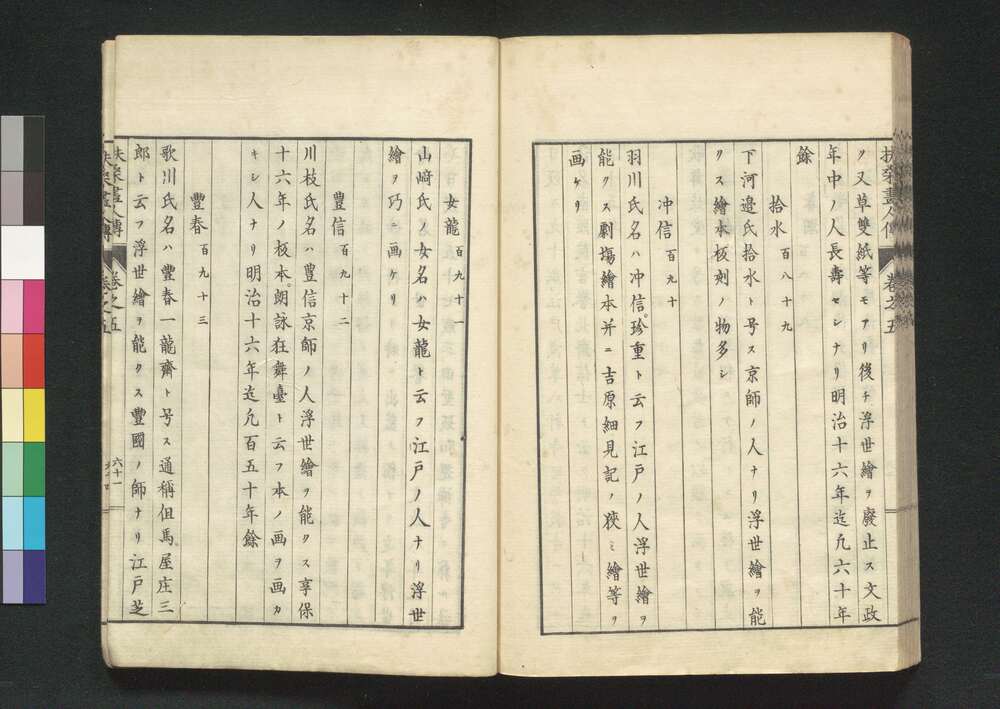 扶桑畫人傳 卷之五
ク又草雙紙等モアリ後チ浮世繪ヲ廢止ス文政
年中ノ人長壽セシナリ明治十六年迄凡六十年
餘
拾水 百八十九
下河邉氏拾水ト号ス京師ノ人ナリ浮世繪ヲ能
クス繪本板刻ノ物多シ
冲信 百九十
羽川氏名ハ冲信珍重ト云フ江戸ノ人浮世繪ヲ
能クス劇塲繪本并ニ吉原細見記ノ狹ミ繪等ヲ
画ケリ
女龍 百九十一
山﨑氏ノ女名ハ女龍ト云フ江戸ノ人ナリ浮世
繪ヲ巧ニ画ケリ
豐信 百九十二
川枝氏名ハ豐信京師ノ人浮世繪ヲ能クス享保
十六年ノ板本朗詠狂舞臺ト云フ本ノ画ヲ画カ
キシ人ナリ明治十六年迄凡百五十年餘
豐春 百九十三
歌川氏名ハ豐春一龍齋ト号ス通稱但馬屋庄三
郎ト云フ浮世繪ヲ能クス豐國ノ師ナリ江戸芝
扶桑畫人傳 卷之五
六十一